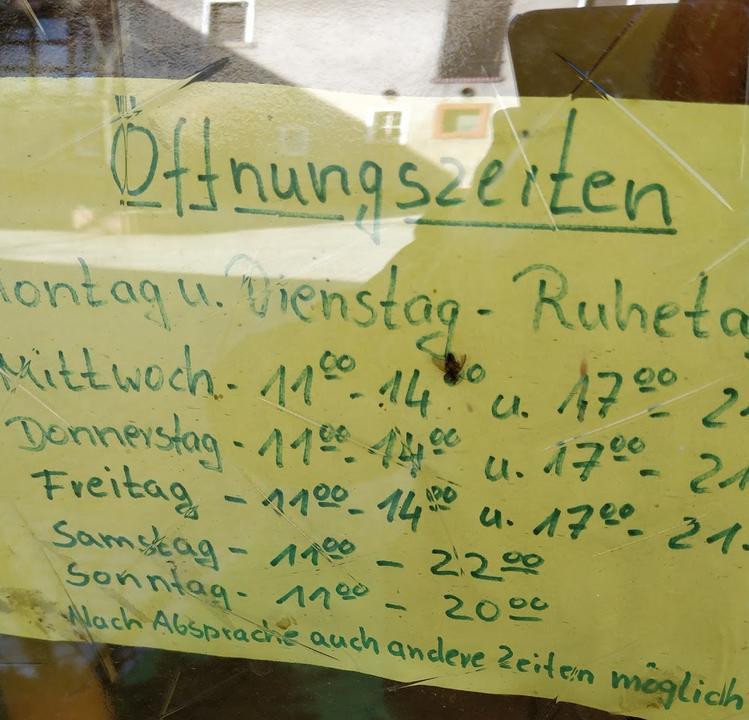 Öffnungszeiten
Montag u. Dienstag - Ruheta
Mittwoch - 11⁰⁰ - 14⁰⁰ u. 17⁰⁰ - 2
Donnerstag - 11⁰⁰ - 14⁰⁰ u. 17⁰⁰ - 21
Freitag - 11⁰⁰ - 14⁰⁰ u. 17⁰⁰ - 21
Samstag - 11⁰⁰ - 22⁰⁰
Sonntag - 11⁰⁰ - 20⁰⁰
Nach Absprache auch andere Zeiten möglich